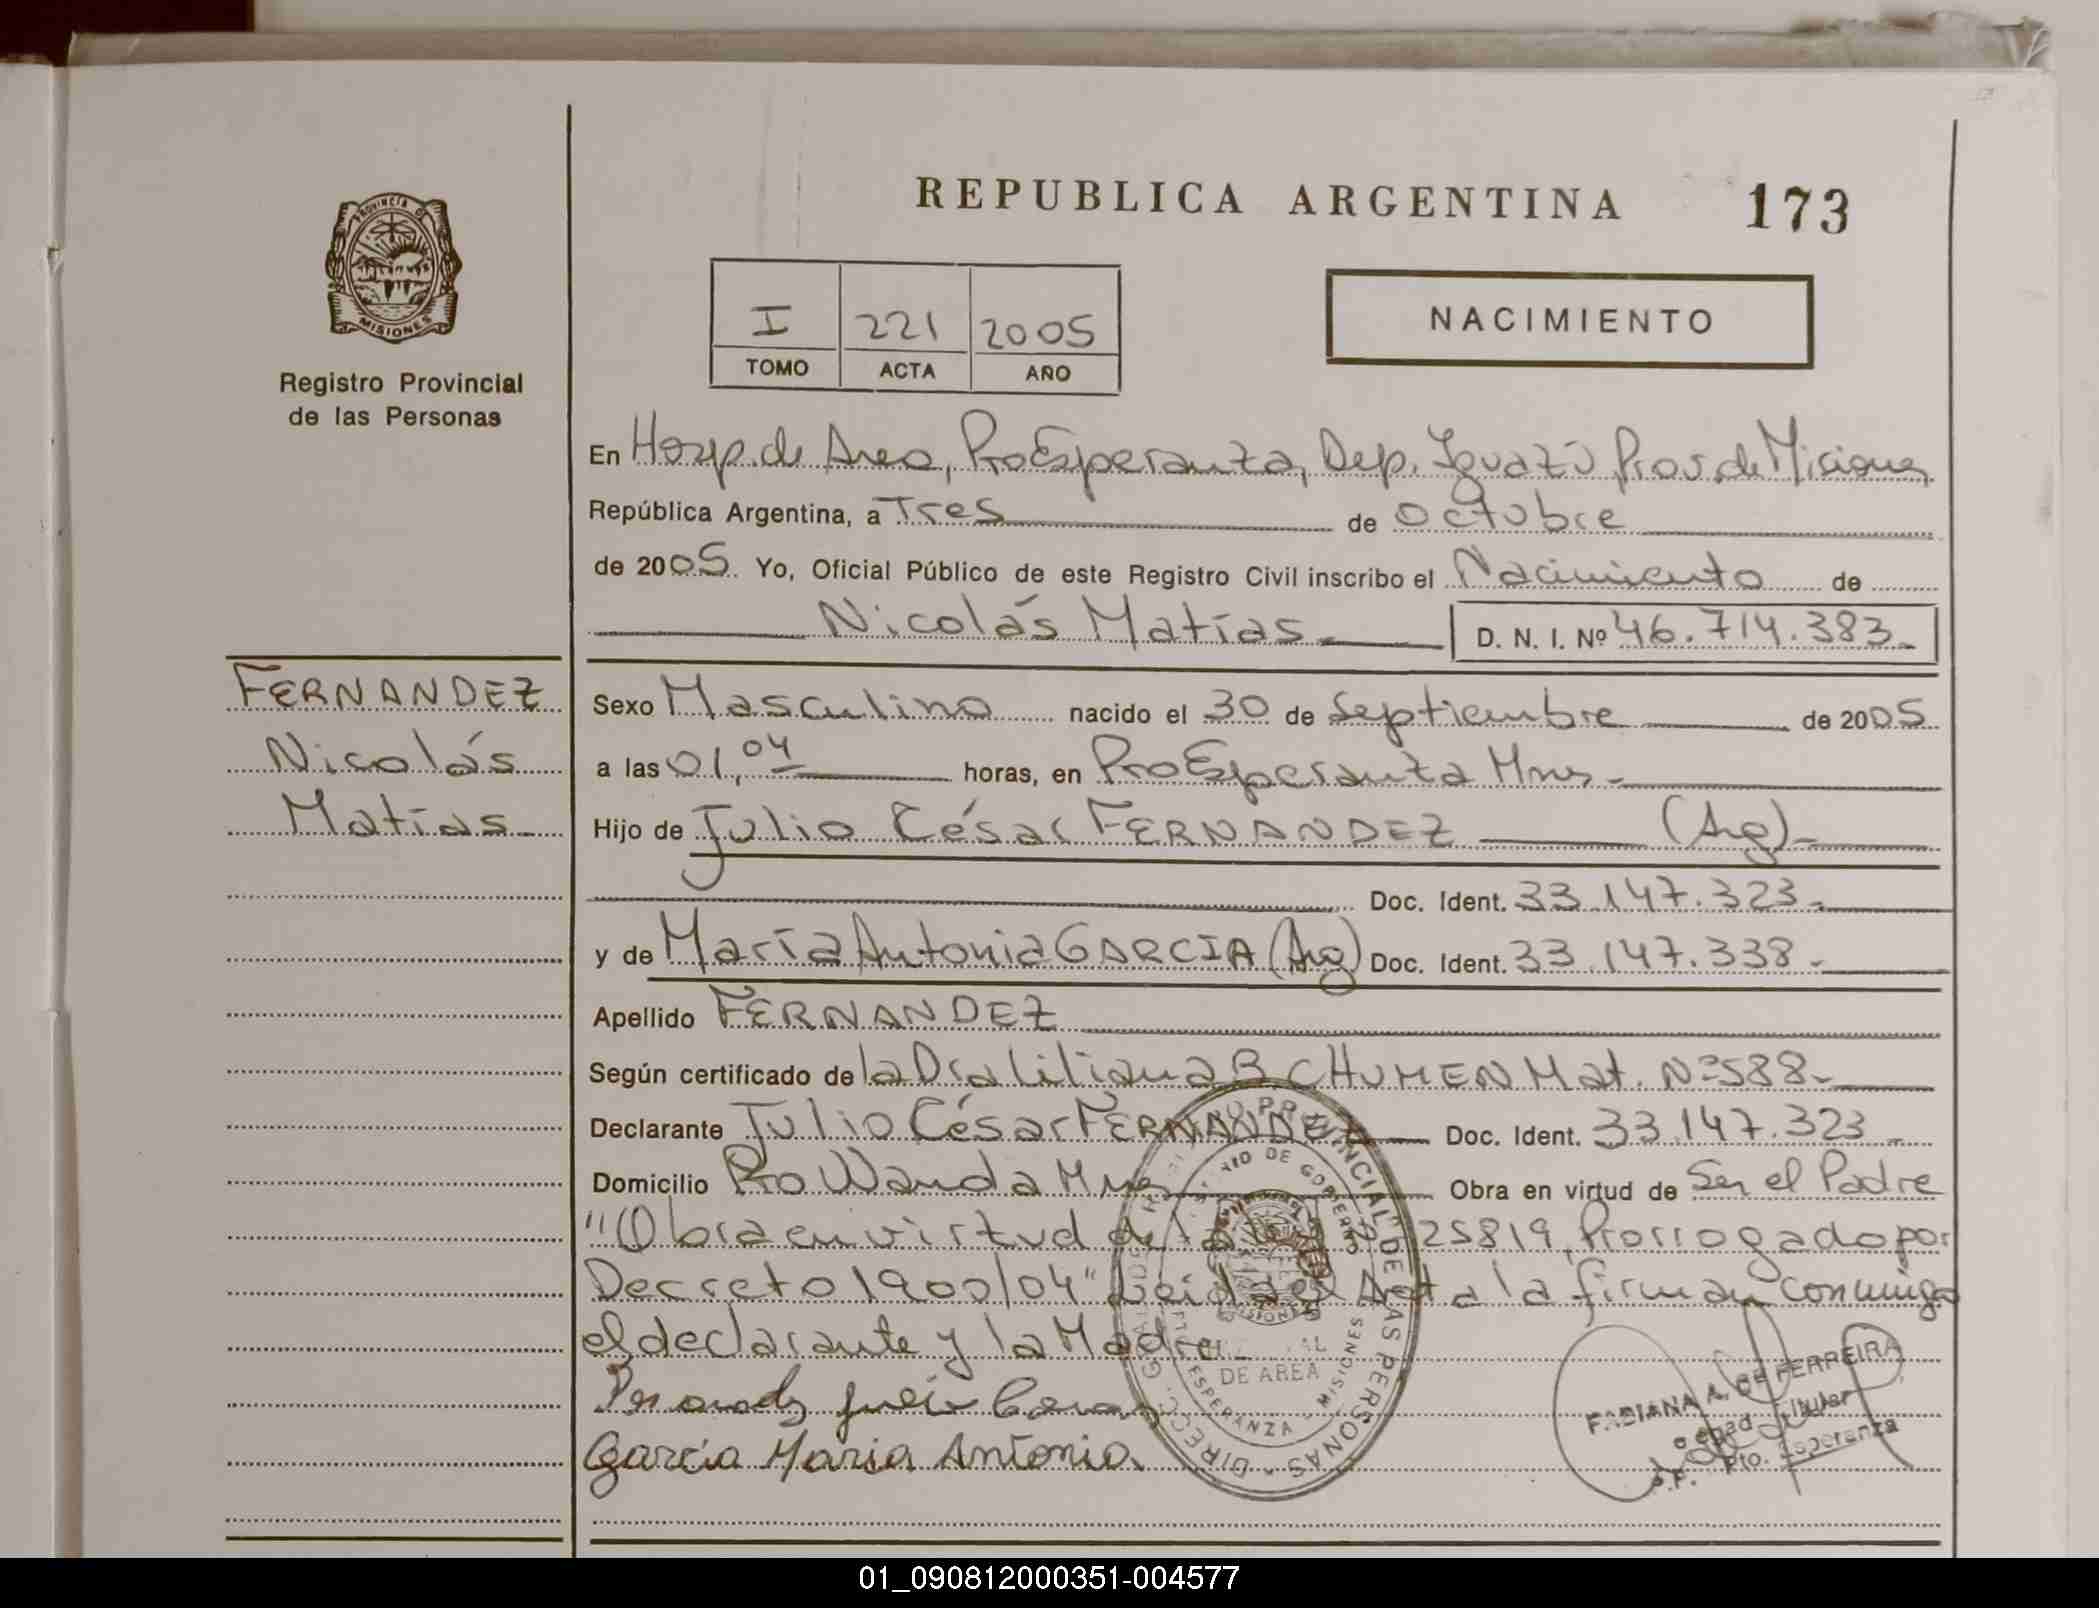 PROVINCIA DE
MISIONES
Registro Provincial
de las Personas
REPUBLICA ARGENTINA 173
I 221 2005
TOMO ACTA AÑO
NACIMIENTO
En Hosp. de Area, Pto Esperanza, Dep. Iguazú Prov. de Misiones
República Argentina, a Tres de Octubre
de 2005. Yo, Oficial Público de este Registro Civil inscribo el Nacimiento de
Nicolás Matías D. N. I. Nº 46.714.383
FERNANDEZ
Nicolás
Matías
Sexo Masculino nacido el 30 de Septiembre de 2005
a las 01,04 horas, en Pto Esperanza Mnes
Hijo de Julio César FERNANDEZ (Arg)
Doc. Ident. 33.147.323
y de María Antonia GARCIA (Arg) Doc. Ident. 33.147.338
Apellido FERNANDEZ
Según certificado de la Dra Liliana B. CHUMEN Mat. Nº 588
Declarante Julio César FERNANDEZ Doc. Ident. 33.147.323
Domicilio Pto Wanda Mnes Obra en virtud de Ser el Padre
"Obra en virtud de la 25819, Prorrogado por
Decreto 1900/04" Leida el Acta la firman conmigo
el declarante y la Madre
Garcia Maria Antonia
DIRECC. GRAL. DEL REGISTRO PROVINCIAL DE LAS PERSONAS
DE GOBIERNO
DE AREA
ESPERANZA - MISIONES
FABIANA A. DE FERREIRA
Titular
Pto. Esperanza
01_090812000351-004577